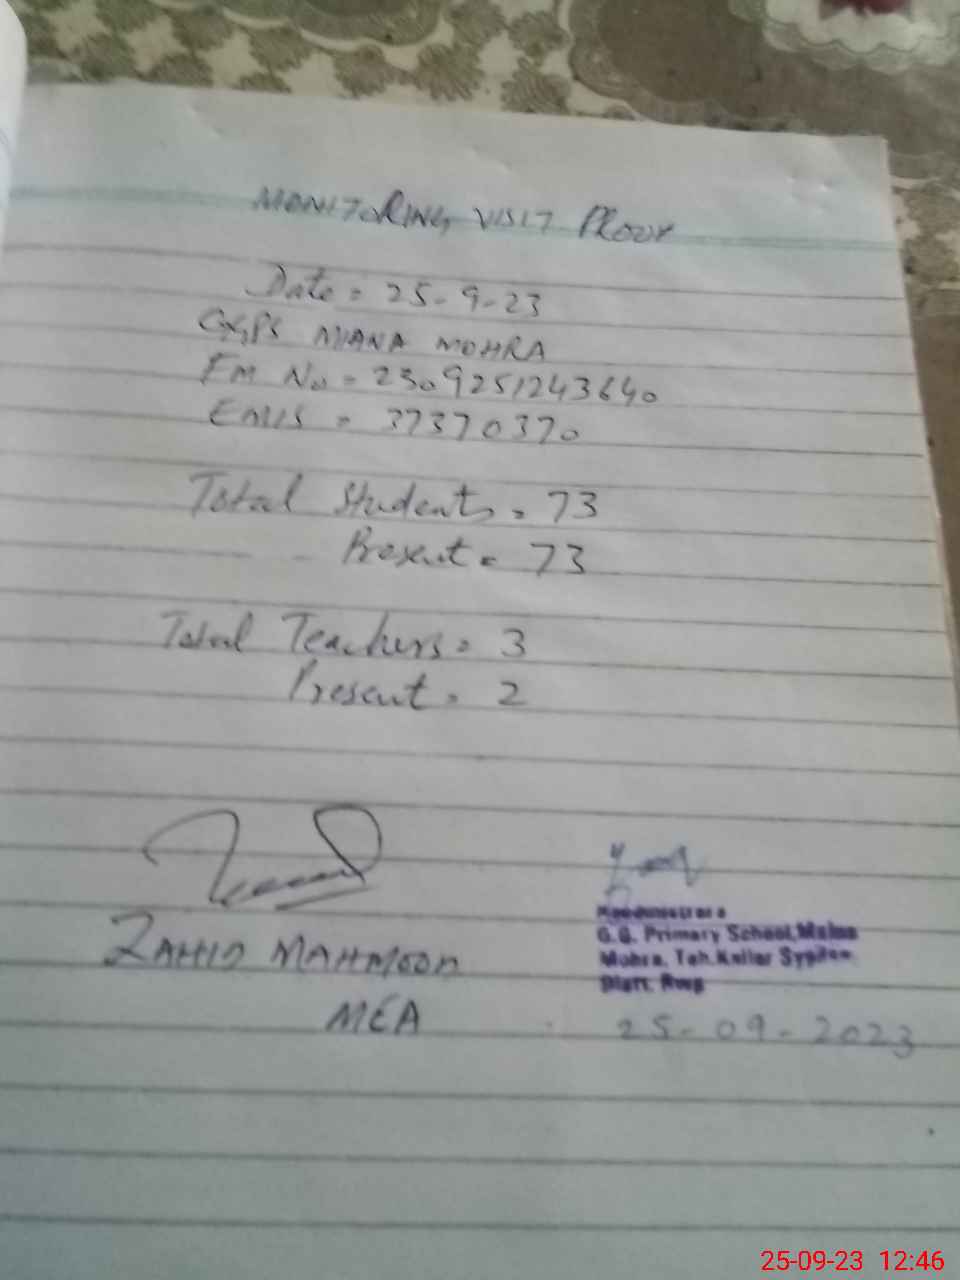 MONITORING VISIT PROOF
Date = 25-9-23
GGPS MIANA MOHRA
FM No = 2309251243640
EMIS = 37370370
Total Students = 73
Present = 73
Total Teachers = 3
Present = 2
ZAHID MAHMOOD
MEA
Headmistress
G.G. Primary School, Maina
Mohra, Teh. Kallar Syedan
Distt. Rwp
25-09-2023
25-09-23 12:46